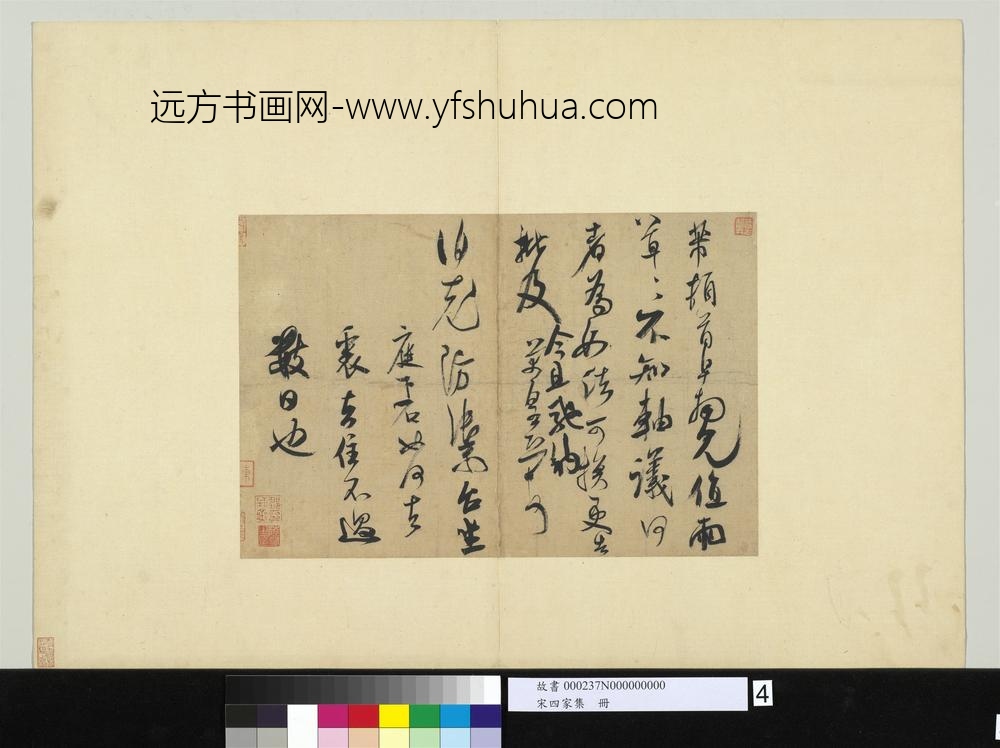 远方书画网-www.yfshuhua.com
芾頓首早拘冗值雨
草々不知軸議何
者為如法可換更告
批及
今且馳納
芾皇恐
伯充防禦台坐
庭下石如何去
衰老住不過
數日也
故書 000237N000000000
宋四家集 冊
4